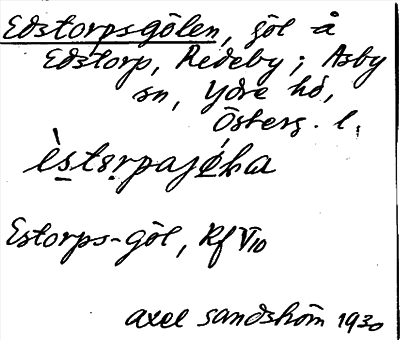 Edstorpsgölen, göl å
Edstorp, Redeby; Asby
sn, Ydre hd,
Österg. l.
Estorps-göl, Rf V10
Axel Sandström 1930